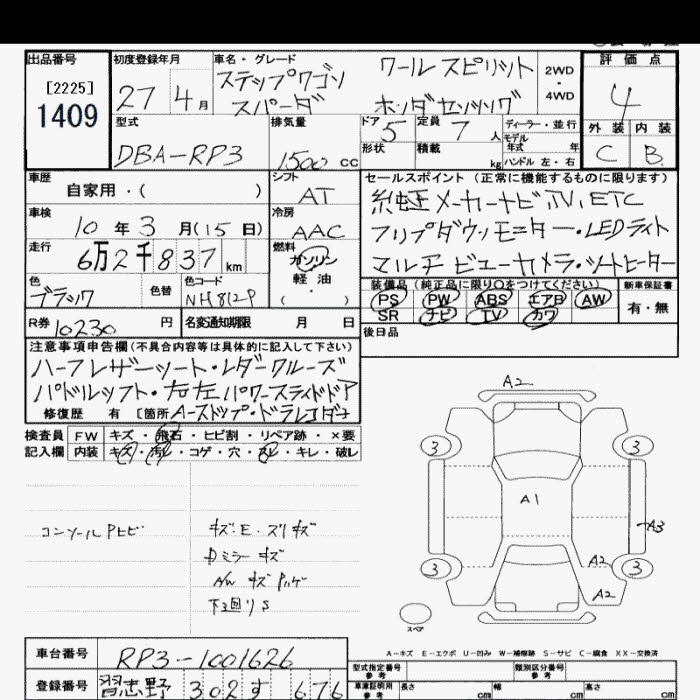 出品番号 初度登録年月 車名・グレード 評価点
[2225] 27 4月 ステップワゴン ワールスピリット 2WD・4WD 4
1409 スパーダ ホンダセンシング
型式 排気量 ドア 5 定員 7人 ディーラー・並行 外装 内装
モデル年式 年
DBA-RP3 1500 cc 形状 積載 kg ハンドル 左・右 C B
車歴 シフト セールスポイント(正常に機能するものに限ります)
自家用・( ) AT 純正メーカーナビ,TV,ETC
車検 冷房 フリップダウンモニター・LEDライト
10年3月(15日) AAC マルチビューカメラ・シートヒーター
走行 6万2千837km 燃料 ガソリン・軽油・( )
装備品(純正品に限り○をつけてください) 新車保証書
色 ブラック 色替 色コード NH812P PS PW ABS エアB AW 有・無
SR ナビ TV カワ
R券 10230円 名変通知期限 月 日 後日品
注意事項申告欄(不具合内容等は具体的に記入して下さい)
ハーフレザーシート・レダークルーズ
パドルシフト・右左パワースライドドア
修復歴 有 [箇所 A-ストップ・ドラレコダー
検査員 FW キズ・飛石・ヒビ割・リペア跡・×要
記入欄 内装 キズ・汚レ・コゲ・穴・スレ・キレ・破レ
A2
3 3
コンソールPヒビ キズ・E・スリキズ A1
Dミラーキズ A3
AW キズ A2
下廻りS 3 3
A2
スペア
A-キズ E-エクボ U-凹み W-補修跡 S-サビ C-腐食 XX-交換済
車台番号 RP3-1001626 型式指定番号 参考 類別区分番号 参考
登録番号 習志野 302 す 676 車庫証明用 参考 長さ cm 幅 cm 高さ cm